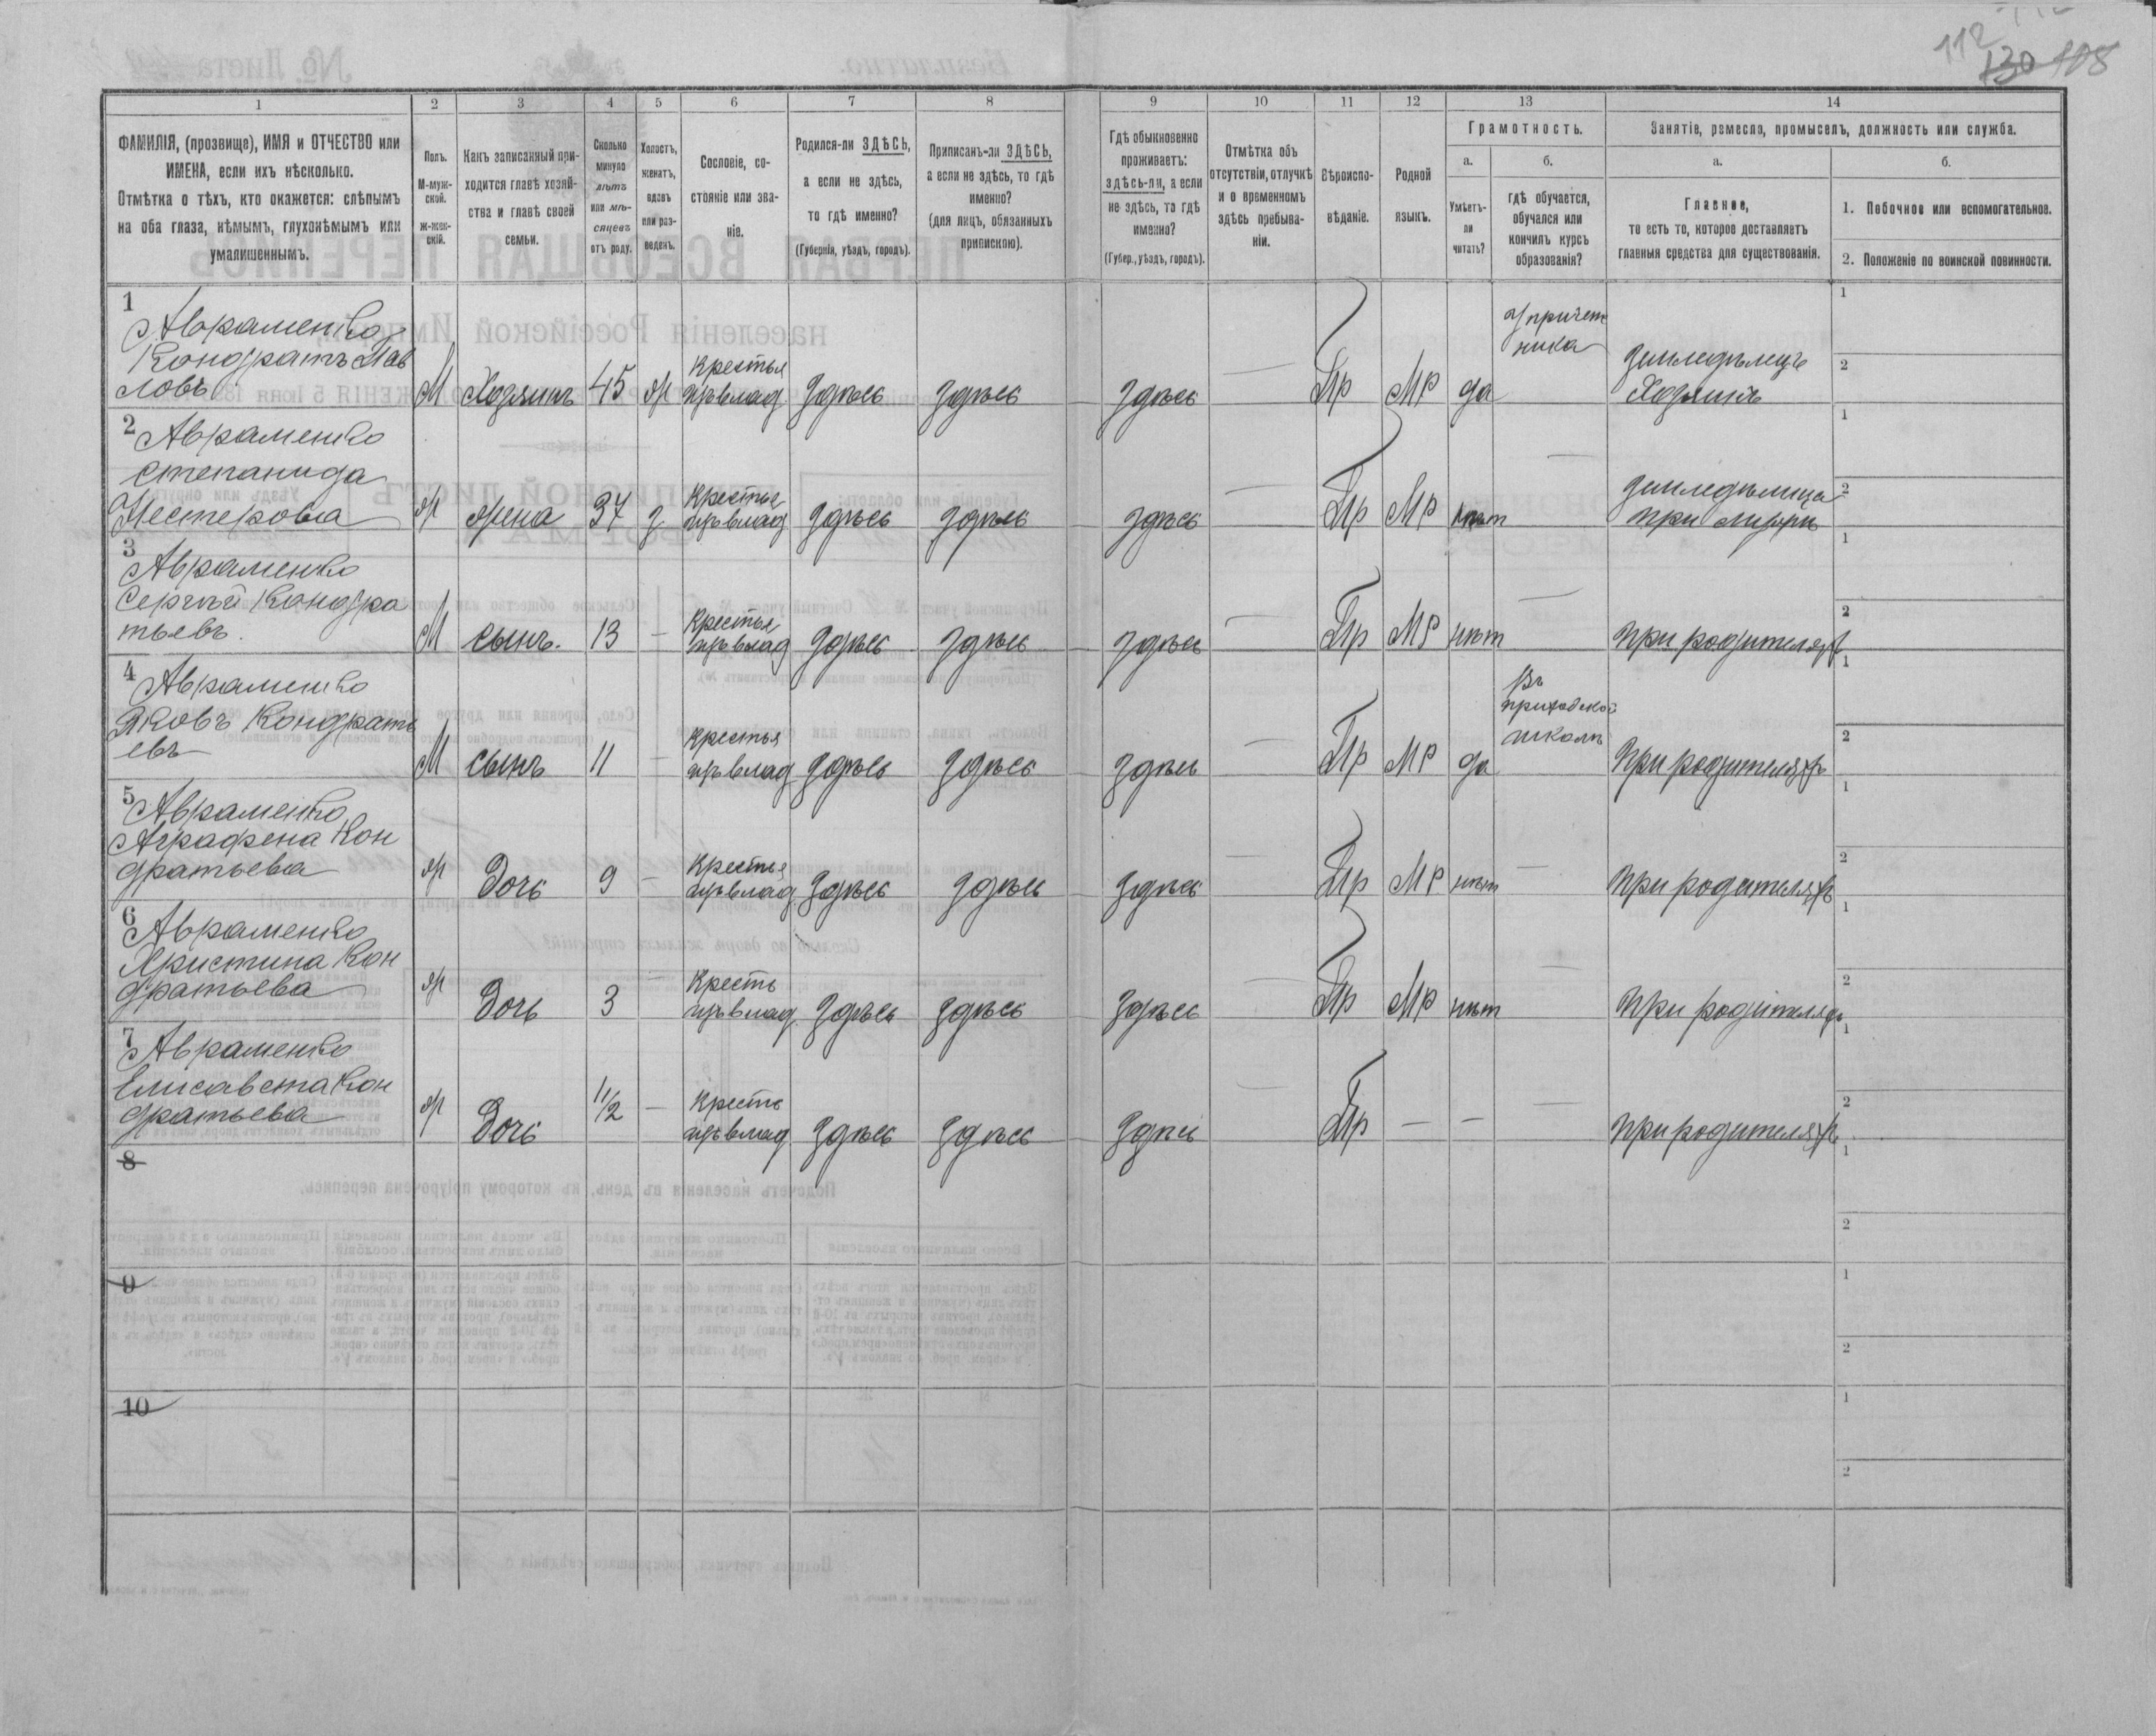 112
130 108
1 2 3 4 5 6 7 8 9 10 11 12 13 14
ФАМИЛІЯ, (прозвище), ИМЯ и ОТЧЕСТВО или
ИМЕНА, если ихъ нѣсколько.
Отмѣтка о тѣхъ, кто окажется: слѣпымъ
на оба глаза, нѣмымъ, глухонѣмымъ или
умалишеннымъ.
Полъ.
М-муж-
ской.
Ж-жен-
скій.
Какъ записанный при-
ходится главѣ хозяй-
ства и главѣ своей
семьи.
Сколько
минуло
лѣтъ
или мѣ-
сяцевъ
отъ роду.
Холостъ,
женатъ,
вдовъ
или раз-
веденъ.
Сословіе, со-
стояніе или зва-
ніе.
Родился-ли ЗДѢСЬ,
а если не здѣсь,
то гдѣ именно?
(Губернія, уѣздъ, городъ).
Приписанъ-ли ЗДѢСЬ,
а если не здѣсь, то гдѣ
именно?
(для лицъ, обязанныхъ
припискою).
Гдѣ обыкновенно
проживаетъ:
здѣсь-ли, а если
не здѣсь, то гдѣ
именно?
(Губер., уѣздъ, городъ).
Отмѣтка объ
отсутствіи, отлучкѣ
и о временномъ
здѣсь пребыва-
ніи.
Вѣроиспо-
вѣданіе.
Родной
языкъ.
Грамотность.
а.
Умѣетъ-
ли
читать?
б.
гдѣ обучается,
обучался или
кончилъ курсъ
образованія?
Занятіе, ремесло, промыселъ, должность или служба.
а.
Главное,
то есть то, которое доставляетъ
главныя средства для существованія.
б.
1. Побочное или вспомогательное.
2. Положеніе по воинской повинности.
1
Авраменко
Кондратъ Пав
ловъ М Хозяинъ 45 ж Крестья
изъ влад здѣсь здѣсь здѣсь — Пр МР да
причет
ника
земледѣлецъ
Хозяинъ
1
2
2 Авраменко
Степанида
Нестерова ж жена 37 з Крестья
изъ влад здѣсь здѣсь здѣсь — Пр МР нѣт — земледѣлица
при мужѣ
1
2
3
Авраменко
Сергѣй Кондра
тьевъ. М сынъ. 13 — Крестья
изъ влад здѣсь здѣсь здѣсь — Пр МР нѣт — при родителяхъ
1
2
4 Авраменко
Яковъ Кондрать
евъ М сынъ 11 — Крестья
изъ влад здѣсь здѣсь здѣсь — Пр МР да
въ
приходской
школѣ
При родителяхъ
1
2
5
Авраменко
Аграфена Кон
дратьева ж Дочь 9 — Крестья
изъ влад здѣсь здѣсь здѣсь — Пр МР нѣт — при родителяхъ
1
2
6
Авраменко
Христина Кон
дратьева ж Дочь 3 — Кресть
изъ влад здѣсь здѣсь здѣсь — Пр МР нѣт — при родителяхъ
1
2
7
Авраменко
Елисавета Кон
дратьева ж Дочь 11/2 — Кресть
изъ влад здѣсь здѣсь здѣсь — Пр — — — при родителяхъ
1
2
8
1
2
9
1
2
10
1
2